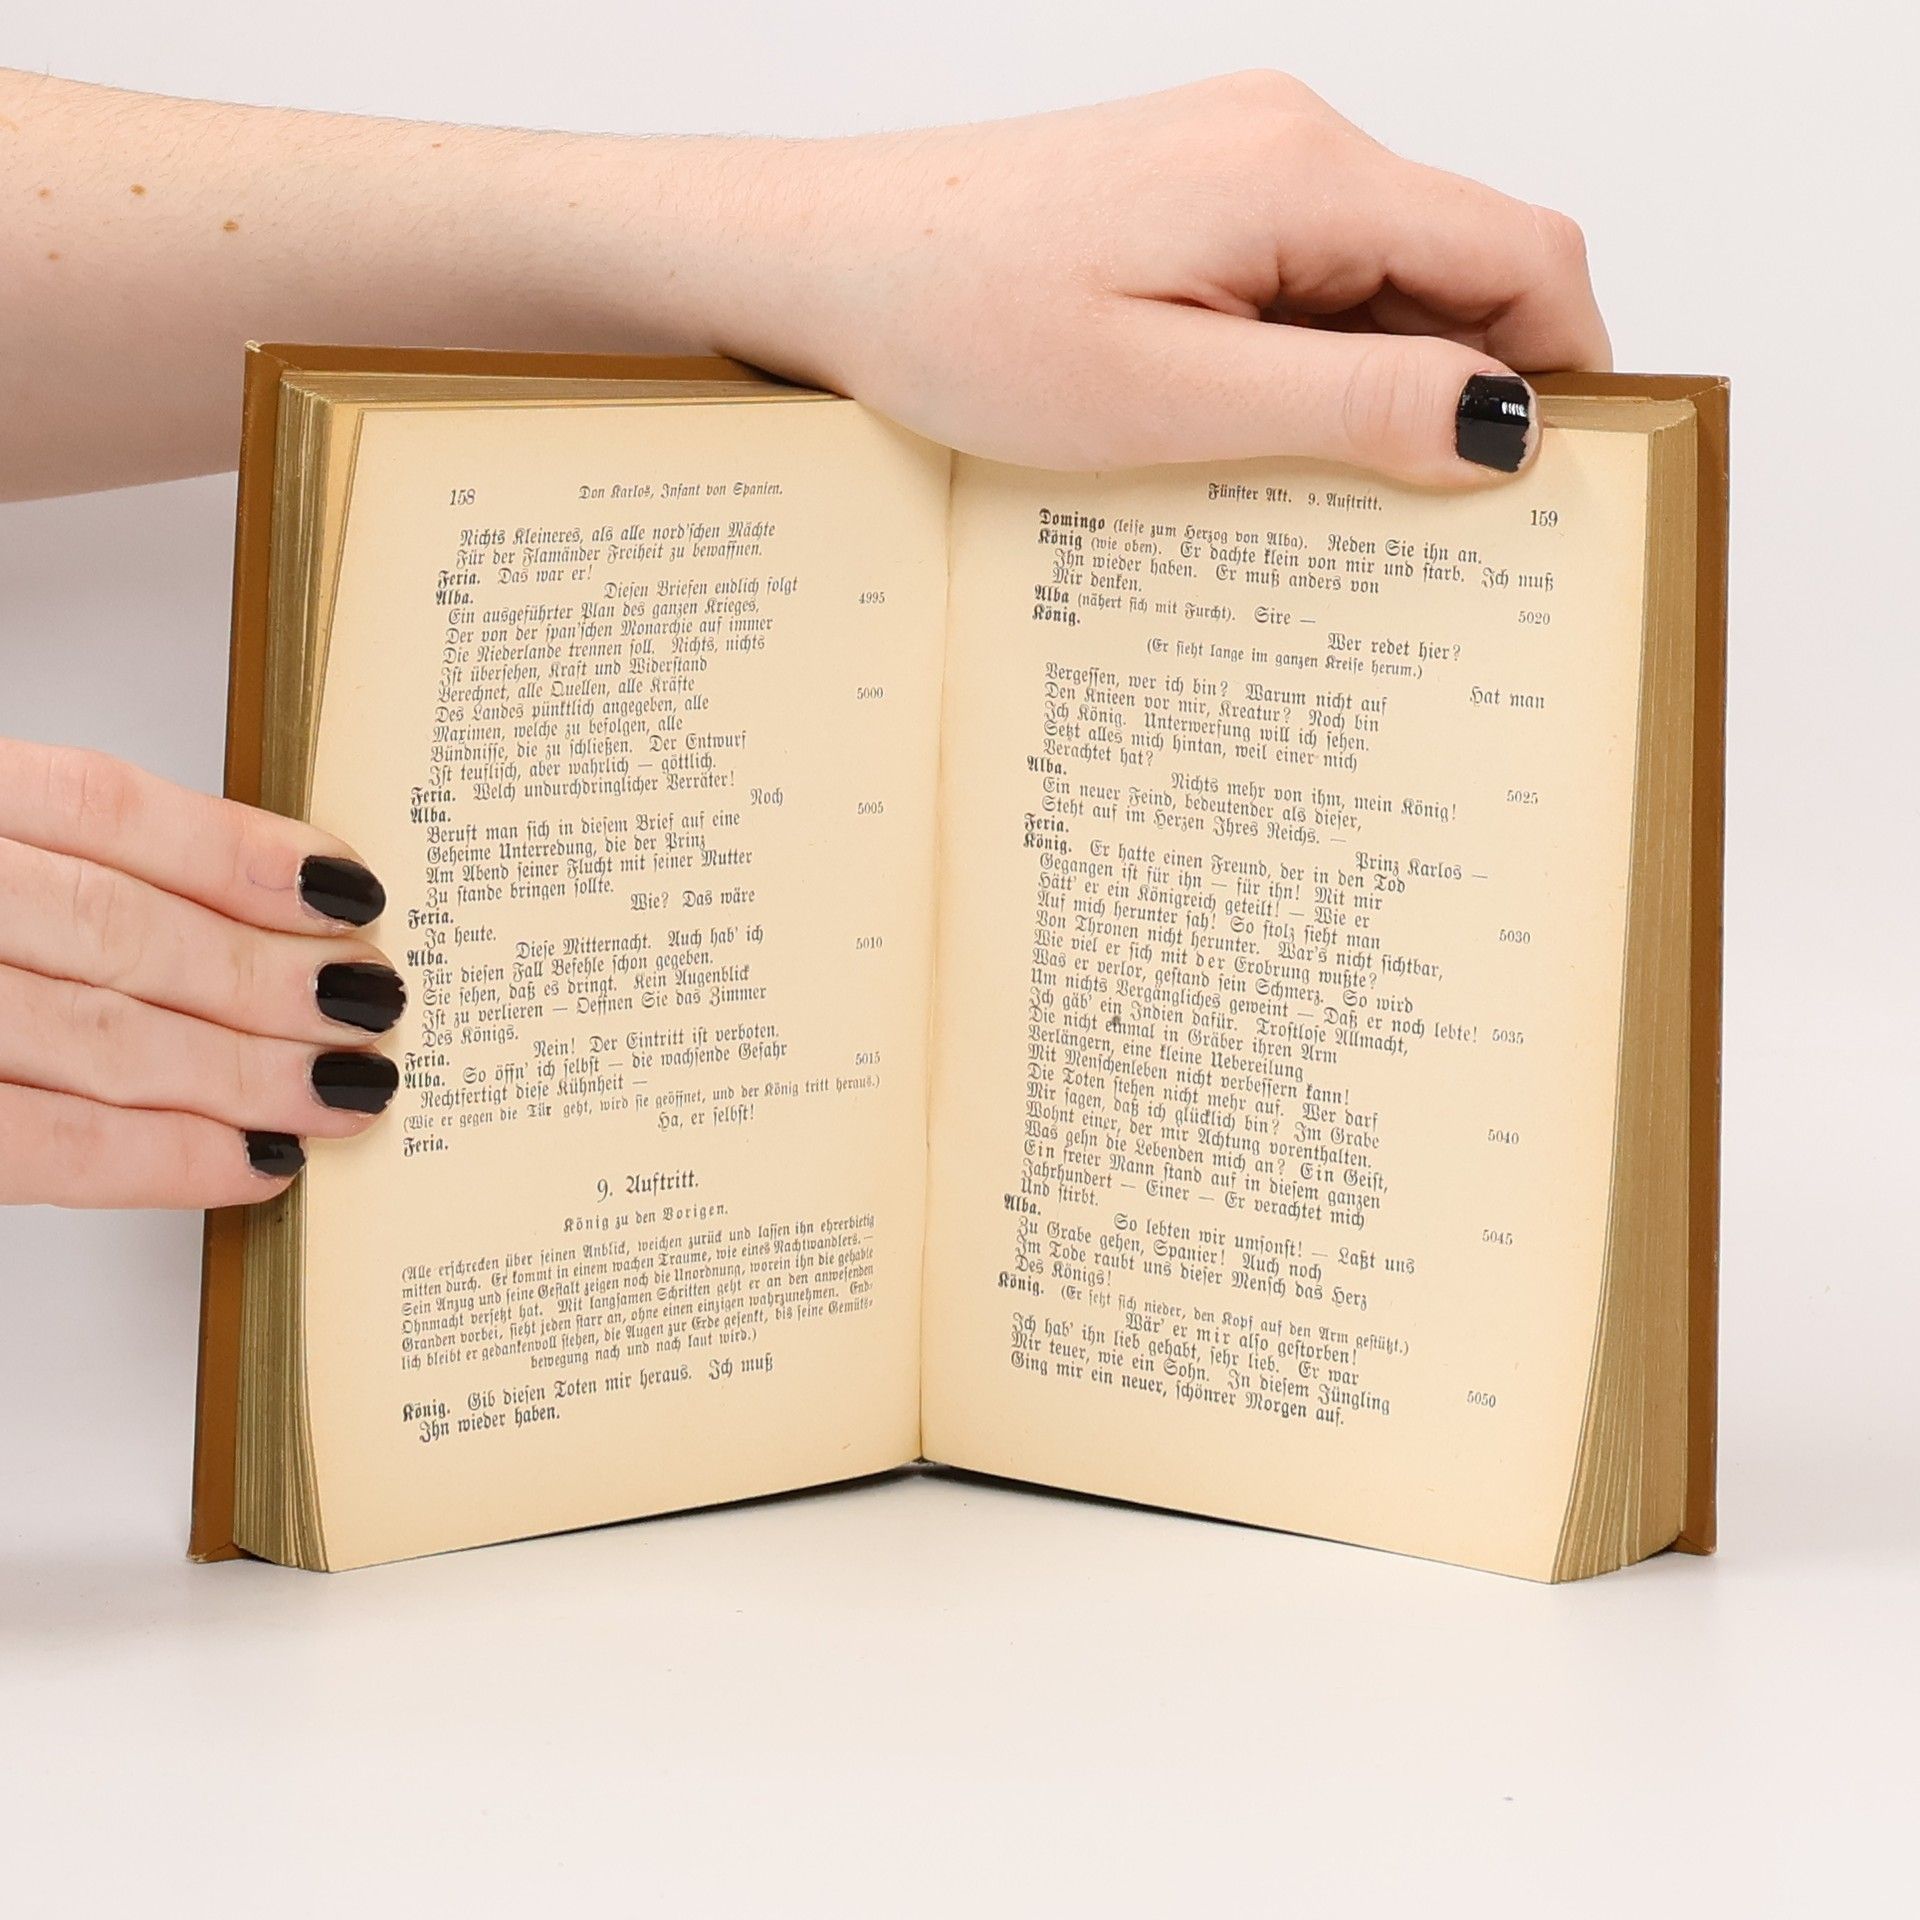 158
Don Karlos, Infant von Spanien.
Nichts Kleineres, als alle nord'schen Mächte
Für der Flamänder Freiheit zu bewaffnen.
Feria. Das war er!
Alba. Diesen Briefen endlich folgt
Ein ausgeführter Plan des ganzen Krieges, 4995
Der von der span'schen Monarchie auf immer
Die Niederlande trennen soll. Nichts, nichts
Ist übersehen, Kraft und Widerstand
Berechnet, alle Quellen, alle Kräfte
Des Landes pünktlich angegeben, alle 5000
Maximen, welche zu befolgen, alle
Bündnisse, die zu schließen. Der Entwurf
Ist teuflisch, aber wahrlich — göttlich.
Feria. Welch undurchdringlicher Verräter!
Alba. Noch
Beruft man sich in diesem Brief auf eine 5005
Geheime Unterredung, die der Prinz
Am Abend seiner Flucht mit seiner Mutter
Zu stande bringen sollte.
Feria. Wie? Das wäre
Ja heute.
Alba. Diese Mitternacht. Auch hab' ich
Für diesen Fall Befehle schon gegeben. 5010
Sie sehen, daß es dringt. Kein Augenblick
Ist zu verlieren — Oeffnen Sie das Zimmer
Des Königs.
Feria. Nein! Der Eintritt ist verboten.
Alba. So öffn' ich selbst — die wachsende Gefahr
Rechtfertigt diese Kühnheit — 5015
(Wie er gegen die Tür geht, wird sie geöffnet, und der König tritt heraus.)
Feria. Ha, er selbst!
9. Auftritt.
König zu den Vorigen.
(Alle erschrecken über seinen Anblick, weichen zurück und lassen ihn ehrerbietig
mitten durch. Er kommt in einem wachen Traume, wie eines Nachtwandlers. —
Sein Anzug und seine Gestalt zeigen noch die Unordnung, worein ihn die gehabte
Ohnmacht versetzt hat. Mit langsamen Schritten geht er an den anwesenden
Granden vorbei, sieht jeden starr an, ohne einen einzigen wahrzunehmen. End-
lich bleibt er gedankenvoll stehen, die Augen zur Erde gesenkt, bis seine Gemüts-
bewegung nach und nach laut wird.)
König. Gib diesen Toten mir heraus. Ich muß
Ihn wieder haben.
Fünfter Akt. 9. Auftritt.
159
Domingo (leise zum Herzog von Alba). Reden Sie ihn an.
König (wie oben). Er dachte klein von mir und starb. Ich muß
Ihn wieder haben. Er muß anders von
Mir denken.
Alba (nähert sich mit Furcht). Sire — 5020
König. Wer redet hier?
(Er sieht lange im ganzen Kreise herum.)
Hat man
Vergessen, wer ich bin? Warum nicht auf
Den Knieen vor mir, Kreatur? Noch bin
Ich König. Unterwerfung will ich sehen.
Setzt alles mich hintan, weil einer mich
Verachtet hat?
Alba. Nichts mehr von ihm, mein König! 5025
Ein neuer Feind, bedeutender als dieser,
Steht auf im Herzen Ihres Reichs. —
Feria. Prinz Karlos —
König. Er hatte einen Freund, der in den Tod
Gegangen ist für ihn — für ihn! Mit mir
Hätt' er ein Königreich geteilt! — Wie er 5030
Auf mich herunter sah! So stolz sieht man
Von Thronen nicht herunter. War's nicht sichtbar,
Wie viel er sich mit der Erobrung wußte?
Was er verlor, gestand sein Schmerz. So wird
Um nichts Vergängliches geweint — Daß er noch lebte! 5035
Ich gäb' ein Indien dafür. Trostlose Allmacht,
Die nicht einmal in Gräber ihren Arm
Verlängern, eine kleine Uebereilung
Mit Menschenleben nicht verbessern kann!
Die Toten stehen nicht mehr auf. Wer darf 5040
Mir sagen, daß ich glücklich bin? Im Grabe
Wohnt einer, der mir Achtung vorenthalten.
Was gehn die Lebenden mich an? Ein Geist,
Ein freier Mann stand auf in diesem ganzen
Jahrhundert — Einer — Er verachtet mich 5045
Und stirbt.
Alba. So lebten wir umsonst! — Laßt uns
Zu Grabe gehen, Spanier! Auch noch
Im Tode raubt uns dieser Mensch das Herz
Des Königs!
König. (Er setzt sich nieder, den Kopf auf den Arm gestützt.)
Wär' er mir also gestorben!
Ich hab' ihn lieb gehabt, sehr lieb. Er war 5050
Mir teuer, wie ein Sohn. In diesem Jüngling
Ging mir ein neuer, schönrer Morgen auf.